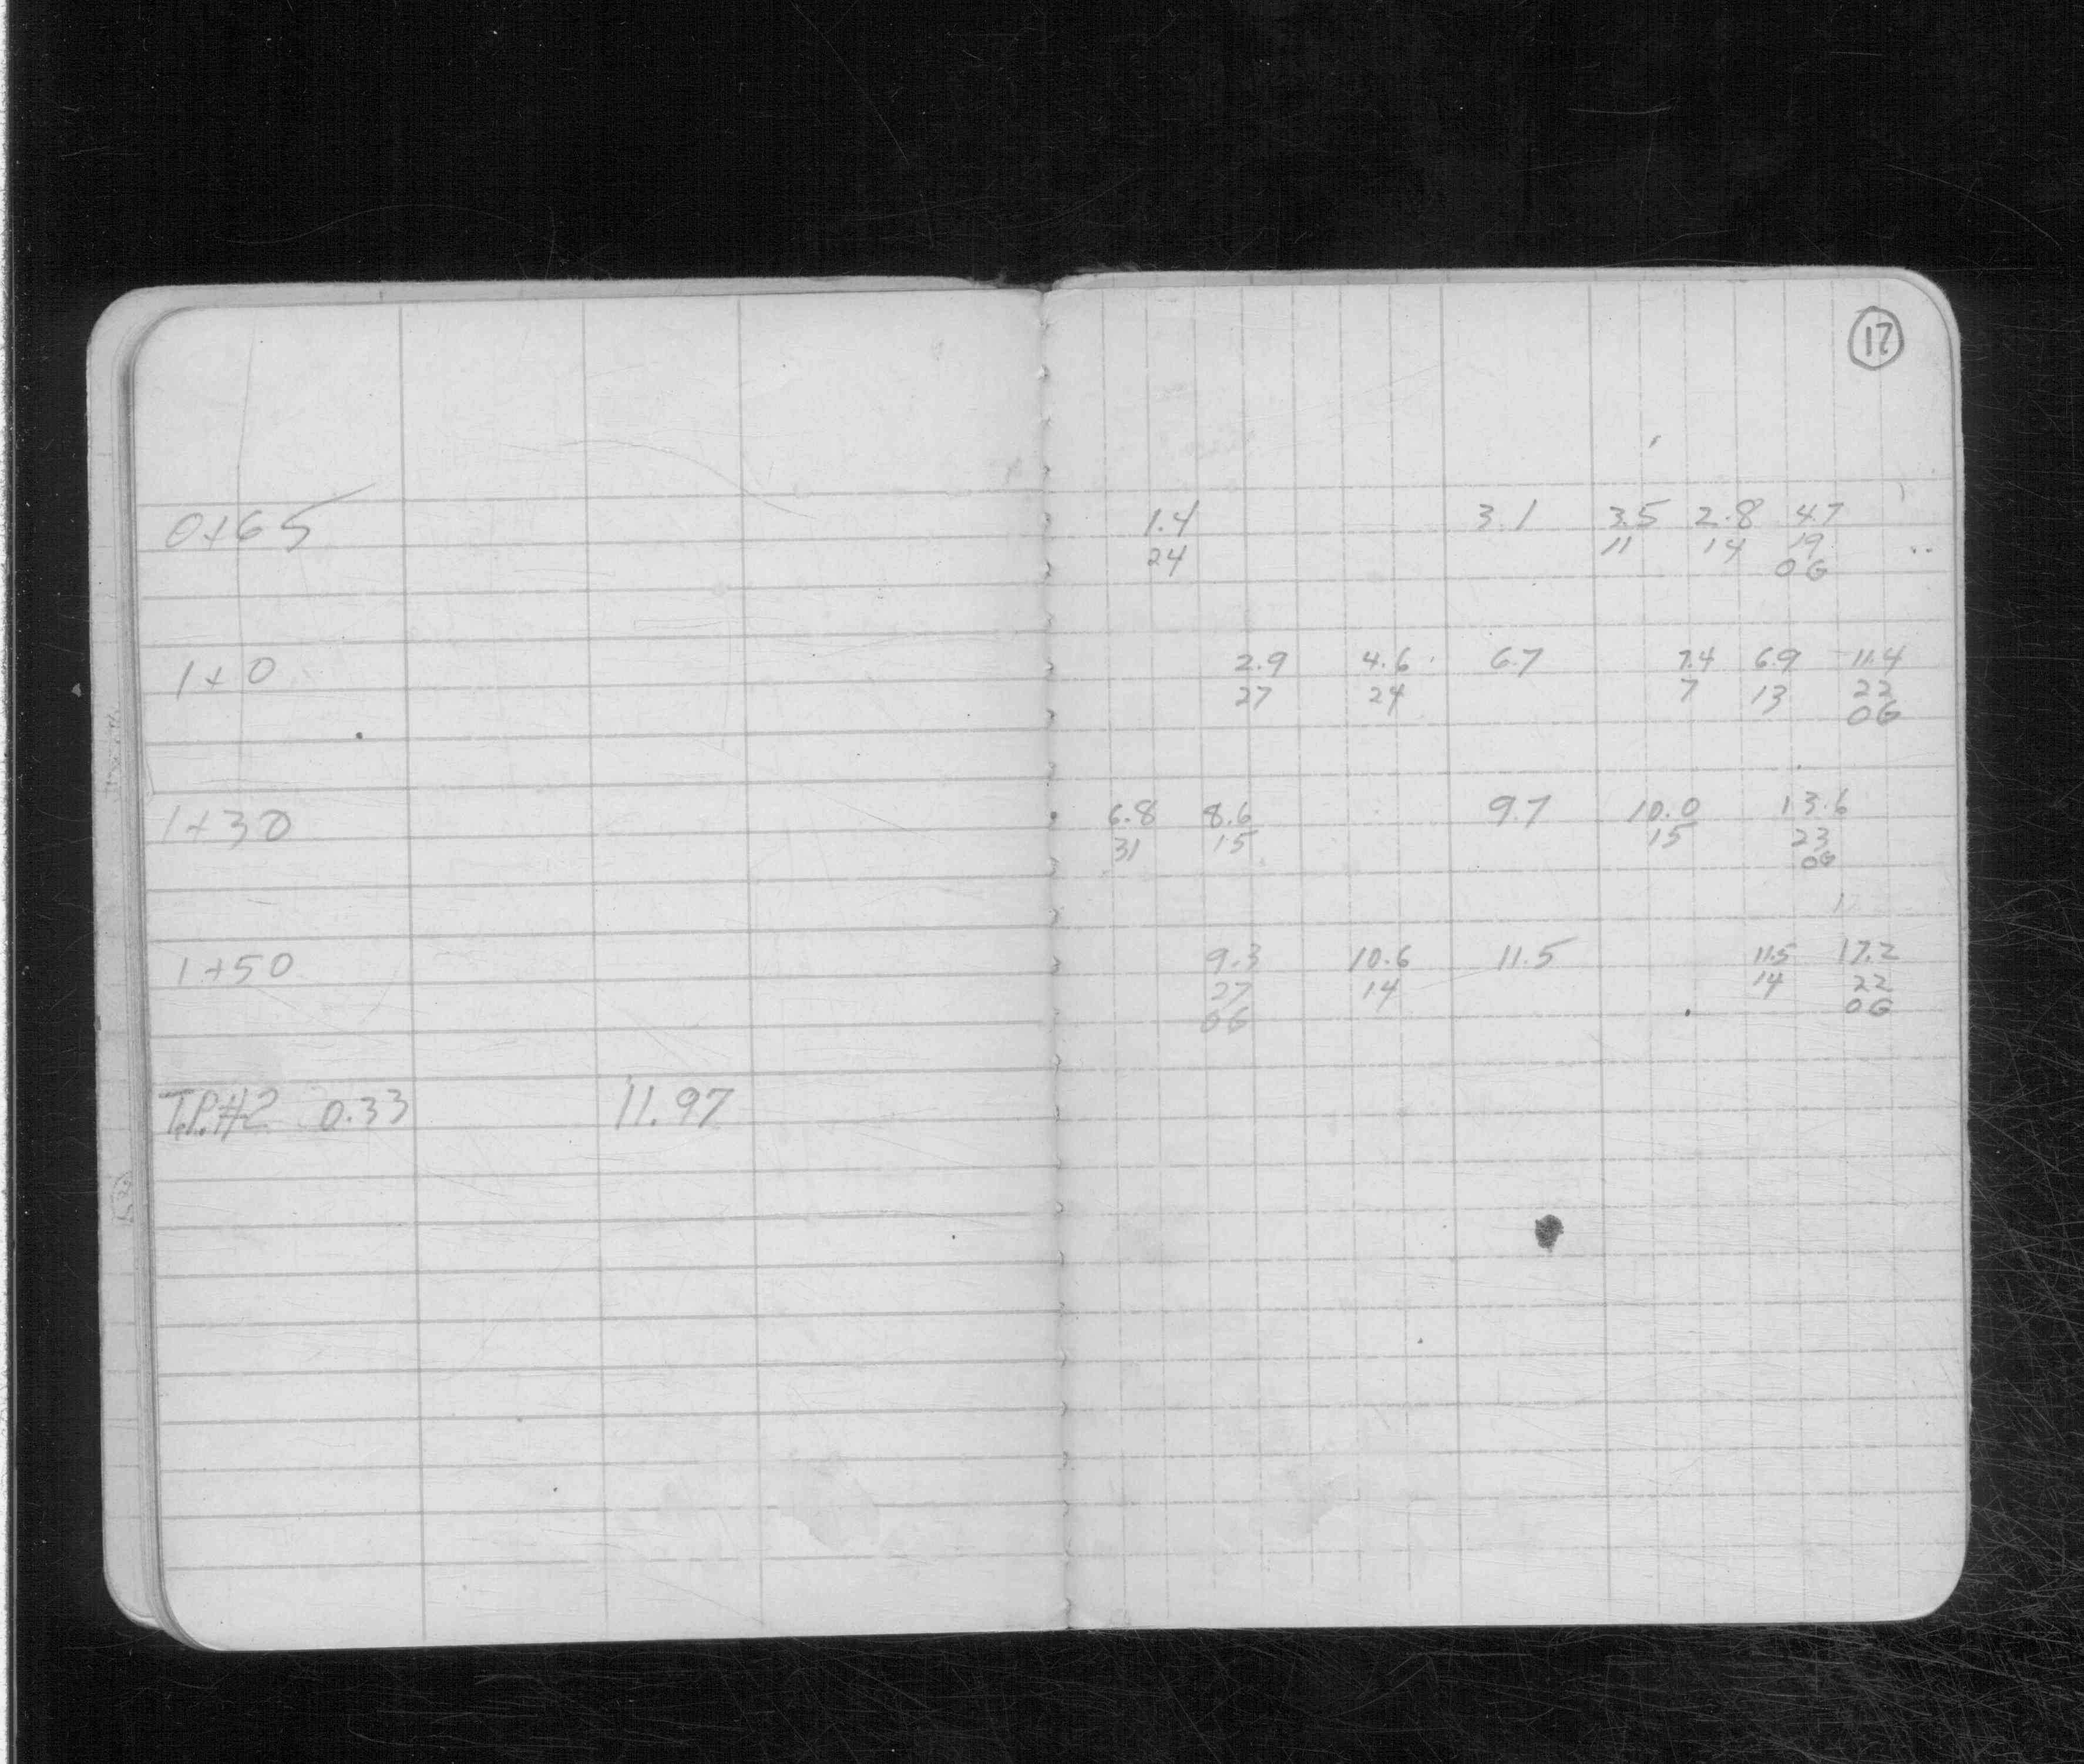 17
0+65 1.4 3.1 3.5 2.8 4.7
24 11 14 19
OG
1+0 2.9 4.6 6.7 7.4 6.9 11.4
27 24 7 13 22
OG
1+30 6.8 8.6 9.7 10.0 13.6
31 15 15 23
OG
1+50 9.3 10.6 11.5 11.5 17.2
27 14 14 22
OG OG
T.P.#2 0.33 11.97